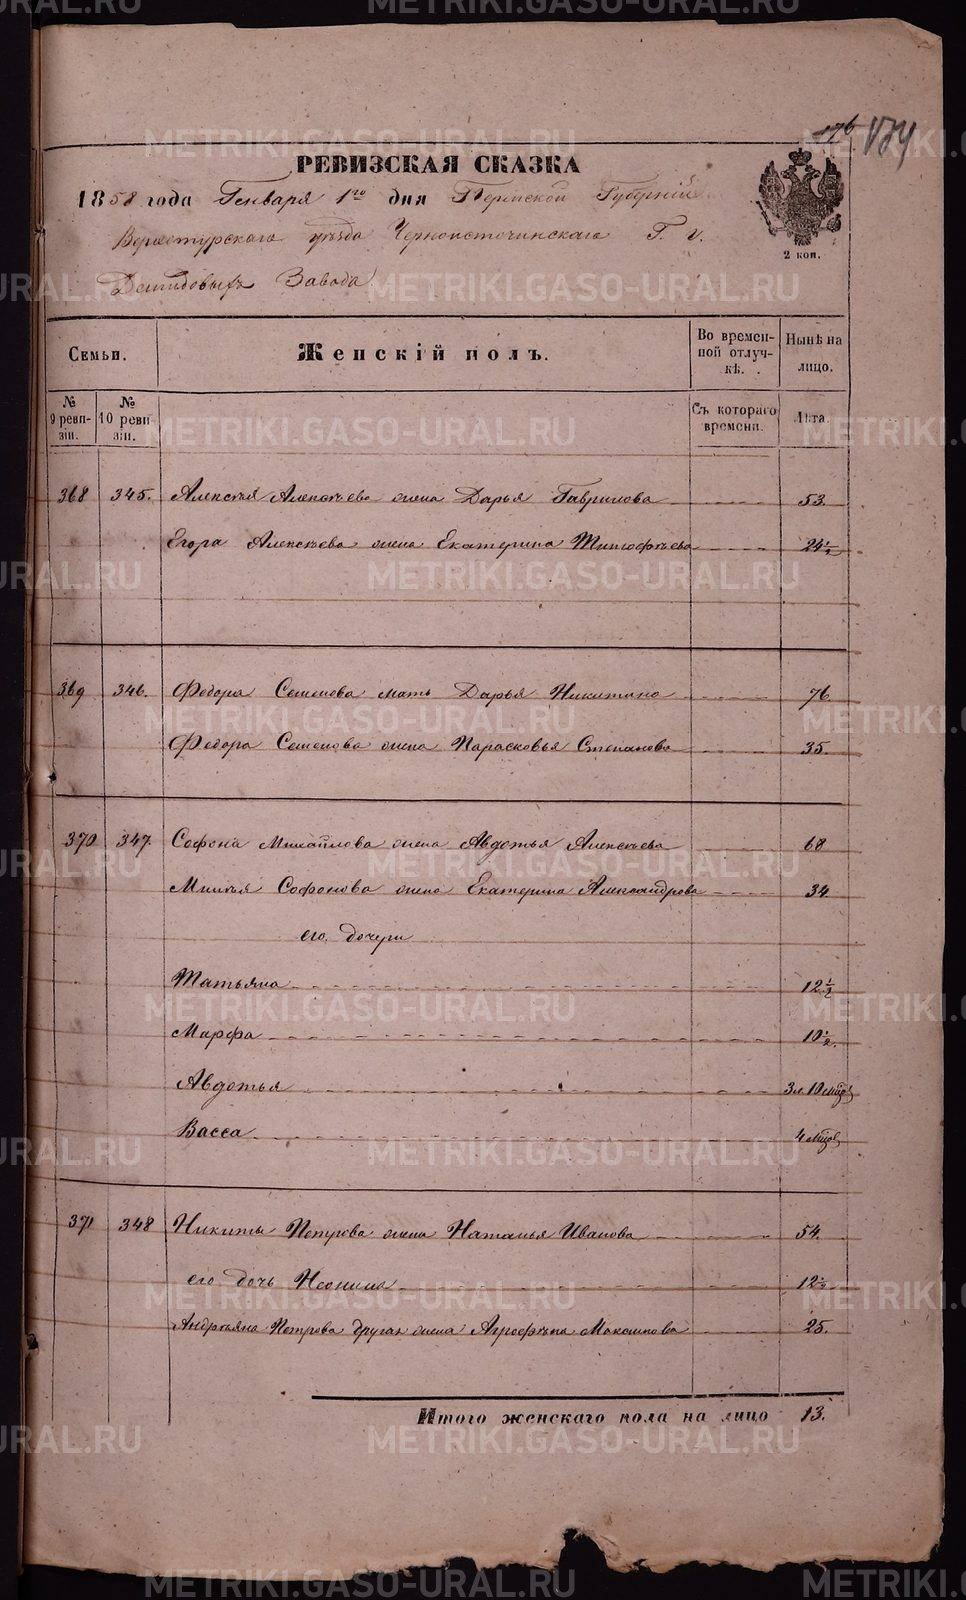 176 174
РЕВИЗСКАЯ СКАЗКА
1858 года Генваря 1го дня Пермской Губернiи
Верхотурскаго уѣзда Черноисточинскаго Г. г.
2 коп.
Демидовыхъ Завода
Семьи.
Женскiй полъ.
Во времен-
ной отлуч-
кѣ.
Нынѣ на
лицо.
№
9 реви-
зiи.
№
10 реви-
зiи.
Съ котораго
времени.
Лѣта.
368 345. Алексѣя Алексѣева жена Дарья Гаврилова 53.
Егора Алексѣева жена Екатерина Тимофѣева 24½
369 346. Федора Семенова мать Дарья Никитина 76
Федора Семенова жена Парасковья Степанова 35.
370 347. Софона Михайлова жена Авдотья Алексѣева 68
Софонова жена Екатерина Александрова 34
его дочери
Татьяна 12½
Марфа 10½.
Авдотья 3 л. 10 мѣцов
Васса 4 мѣцов
371 348 Никиты Петрова жена Наталья Иванова 54.
его дочь Неонила 12½
Андреяна Петрова другая жена Агрофѣна Максимова 25.
Итого женскаго пола на лицо 13.
METRIKI.GASO-URAL.RU